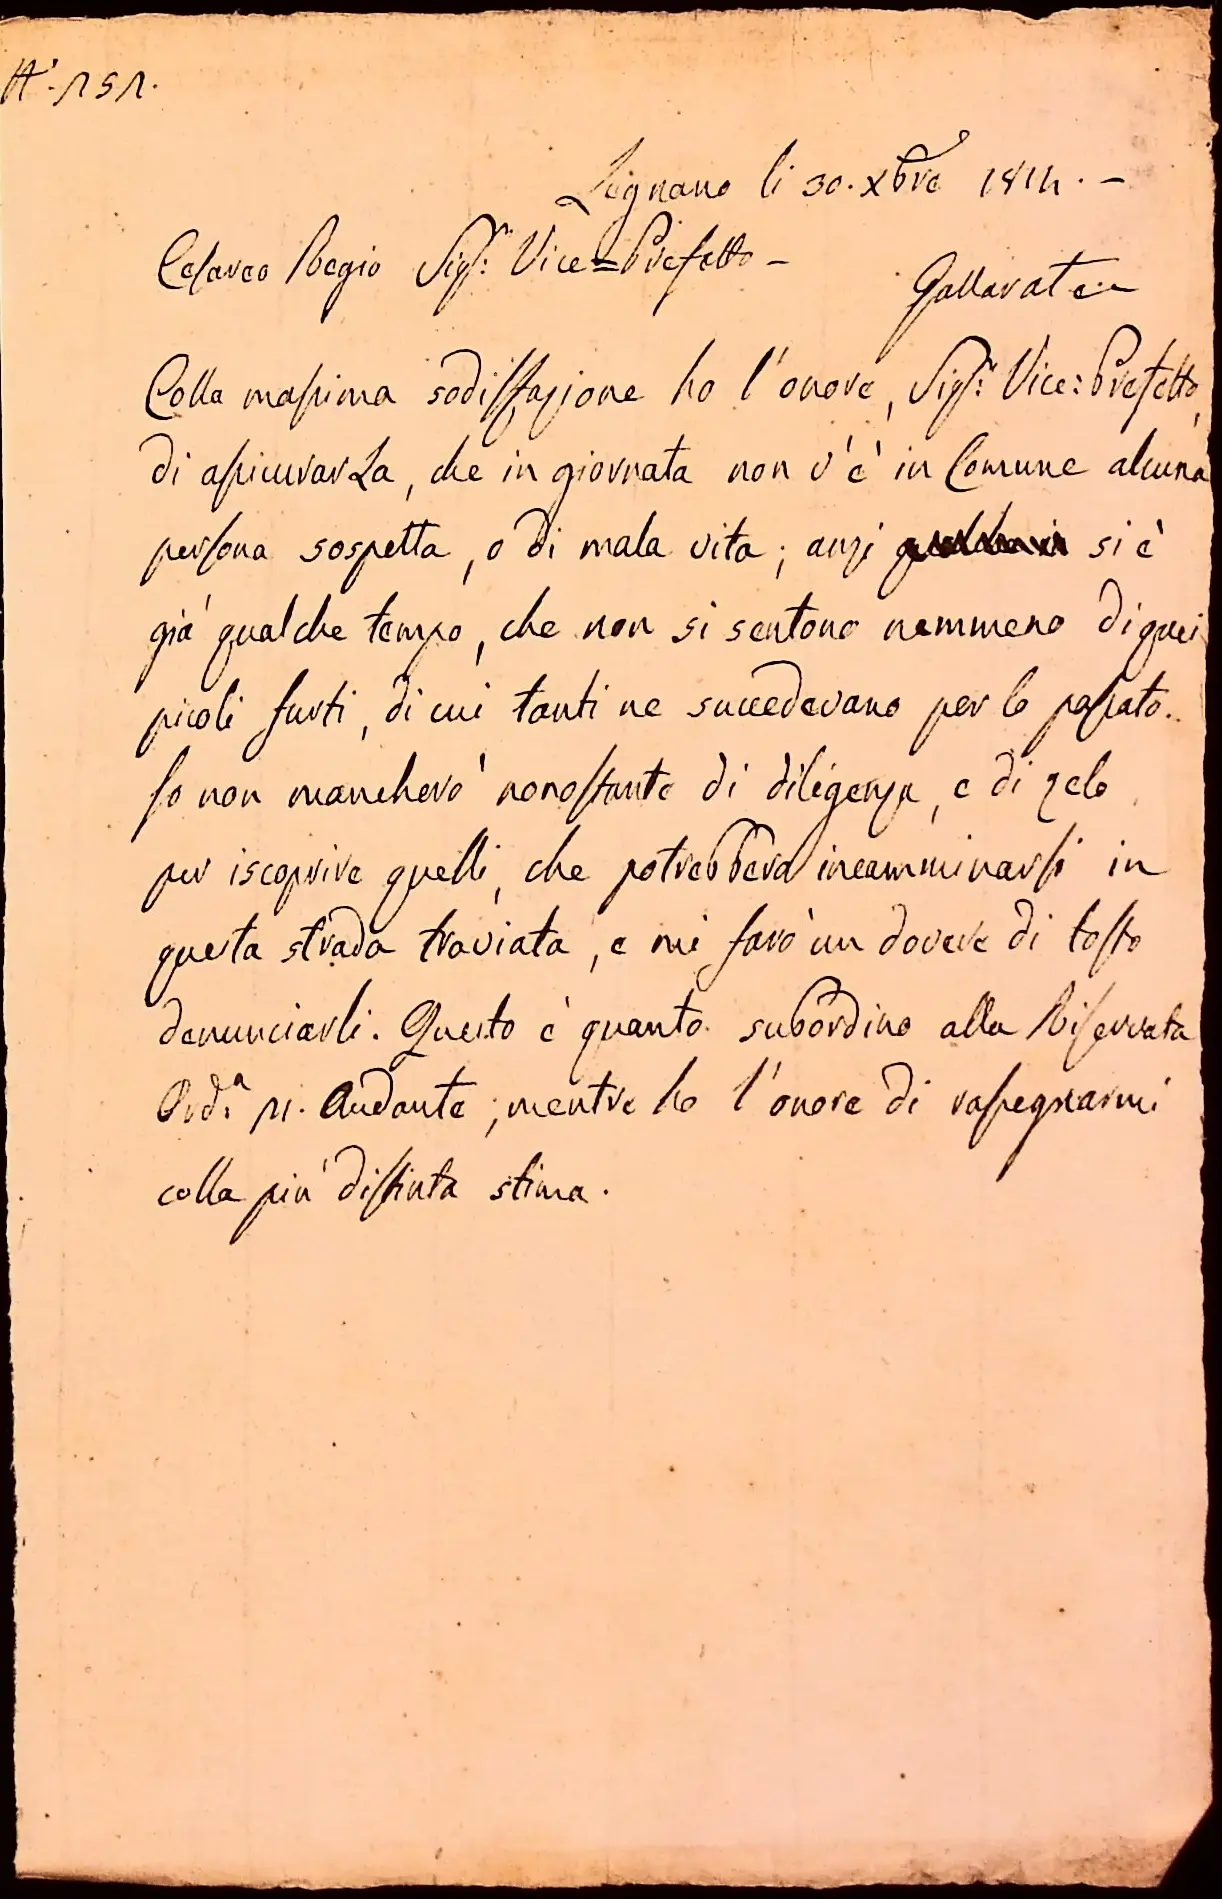 N.° 151.
Legnano li 30. Xbre 1814. -
Cesareo Regio Sigr: Vice=Prefetto -
Gallarate
Colla massima sodisfazione ho l'onore, Sigr: Vice=Prefetto,
di assicurarLa, che in giornata non v'è in Comune alcuna
persona sospetta, o di mala vita; anzi si è
già qualche tempo, che non si sentono nemmeno di quei
picoli furti, di cui tanti ne succedevano per lo passato.
Io non mancherò nonostante di diligenza, e di zelo
per iscoprire quelli, che potrebbero incamminarsi in
questa strada traviata, e mi farò un dovere di tosto
denunciarli. Questo è quanto subordino alla Riservata
Ord.a Andante; mentre ho l'onore di rassegnarmi
colla più distinta stima.